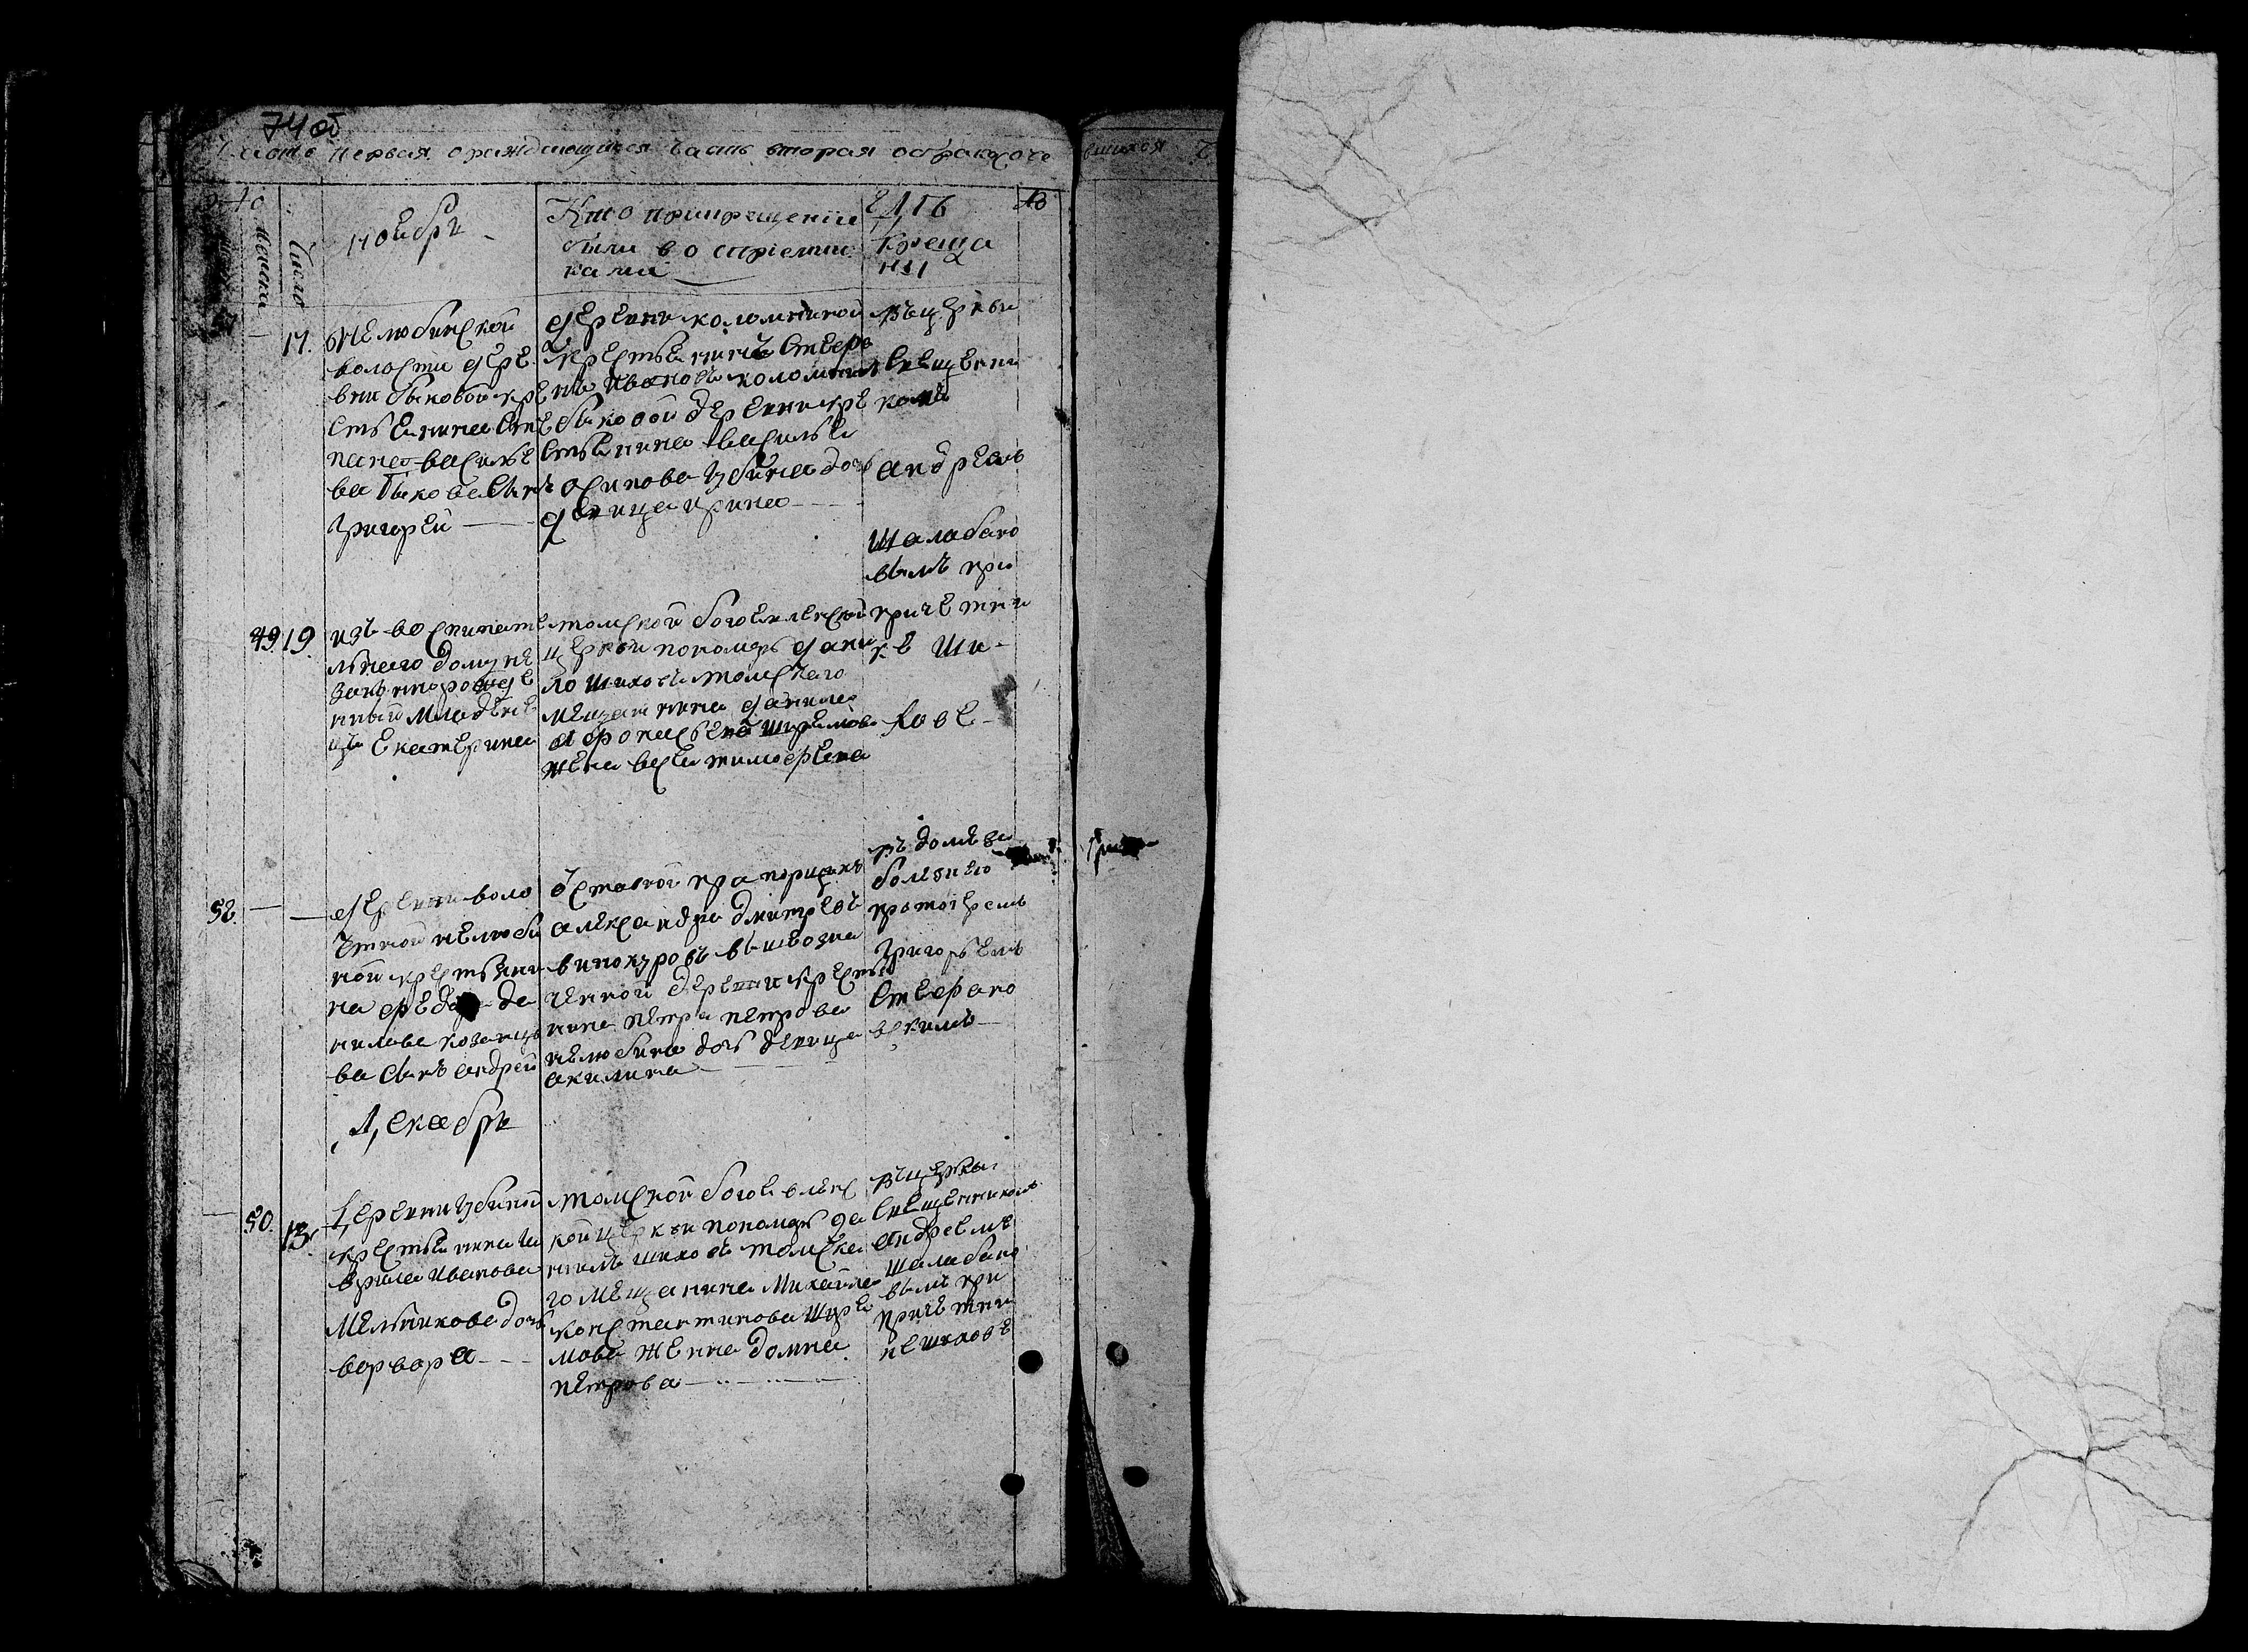 74 об
Часть первая о раждающихся Часть вторая о бракосоче
вшихся Ч
Женска
Число
ноябрь
Кто при крещении
были восприемни
ками
где
креща
ны
17.
Нелюбинской
волости дере
вни быковой кре
стьянина Сте
пана василье
ва быкова Сынъ
григорей
деревни коломниной
крестьянинъ Стефа
нъ Ивановъ коломнинъ
быковой деревни кре
стьянина василья
осипова губина дочь
девица ирина
въ церкви
Священни
комъ
андреемъ
Шалабано
вымъ при
49. 19.
изъ воспитате
льнаго дому не
законнорожде
нный младене
цъ Екатерина
томской богоявленской
церкви пономарь дани
ло шиховъ томскаго
мещанина данила
афонасьева ширяева
жена васса тимофеева
причетни
ке Ши-
хове-
52.
деревни воло
нелюби
ной крестьяни
на федора да
нилова козанцо
ва сынъ андрей
отставной прапорщикъ
александръ дмитревъ
винокуровъ вышеозна
ченной деревни кресть
нина петра петрова
нелюбина дочь девица
акилина
въ доме за
болезнею
протоиреемъ
григорьемъ
Стефано
вскимъ
Декабрь
50. 13.
Деревни губиной
крестьянина га
врила иванова
Мельникова дочь
варвара
томской богоявленс
кой церкви пономарь да
нилъ шиховъ томска
го мещанина Михайла
константинова ширя
жена домна
петрова
въ церкви
Священникомъ
андреемъ
шалабано
вымъ при
причетни
ке шихове